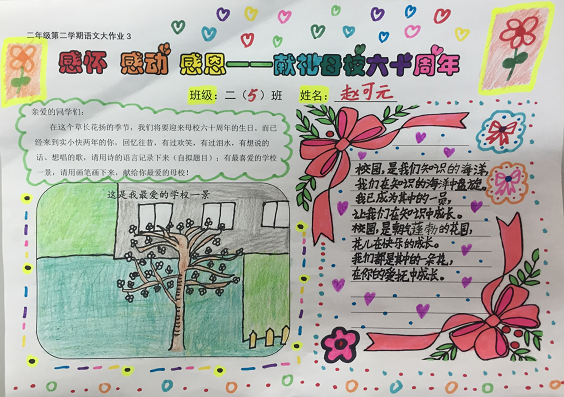 二年级第二学期语文大作业 3
感怀 感动 感恩——献礼母校六十周年
班级：二（5）班 姓名：赵可元
亲爱的同学们：
在这个草长花扬的季节，我们将要迎来母校六十周年的生日。而已
经来到实小快两年的你，回忆往昔，有过欢笑，有过泪水，有想说的
话、想唱的歌，请用诗的语言记录下来（自拟题目）；有最喜爱的学校
一景，请用画笔画下来，献给你最爱的母校！
这是我最爱的学校一景
校园，是我们知识的海洋，
我们在知识的海洋中盘旋。
我已成为其中的一员，
让我们在知识中成长。
校园，是朝气蓬勃的花园，
花儿在快乐的成长。
我们都是其中的一朵花，
在你的爱抚中成长。